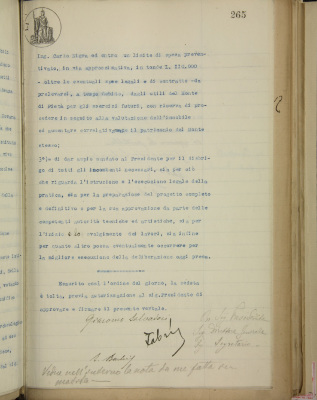 265
Ing. Carlo Nigra ed entro un limite di spesa preven-
tivata, in via approssimativa, in tonde L. 570.000
- Oltre le eventuali spese legali e di contratto -da
prelevarsi, a compimento, dagli utili del Monte
di Pietà per gli esercizi futuri, con riserva di pro-
cedere in seguito alla valutazione dell'immobile
ed aumentare correlativamente il patrimonio del Monte
stesso;
3°)- di dar ampio mandato al Presidente per il disbri-
go di tutti gli incombenti necessari, sia per ciò
che riguarda l'istruzione e l'esecuzione legale della
pratica, sia per la preparazione del progetto completo
e definitivo e per la sua approvazione da parte delle
competenti autorità tecniche ed artistiche, sia per
l'inizio e lo svolgimento dei lavori, sia infine
per quanto altro possa eventualmente occorrere per
la migliore esecuzione della deliberazione oggi presa.
Esaurito così l'ordine del giorno, la seduta
è tolta, previa autorizzazione al sig. Presidente di
approvare e firmare il presente verbale.
Giacomo
Il Presidente
Il Segretario
Visto nell'interno la nota da me fatta on